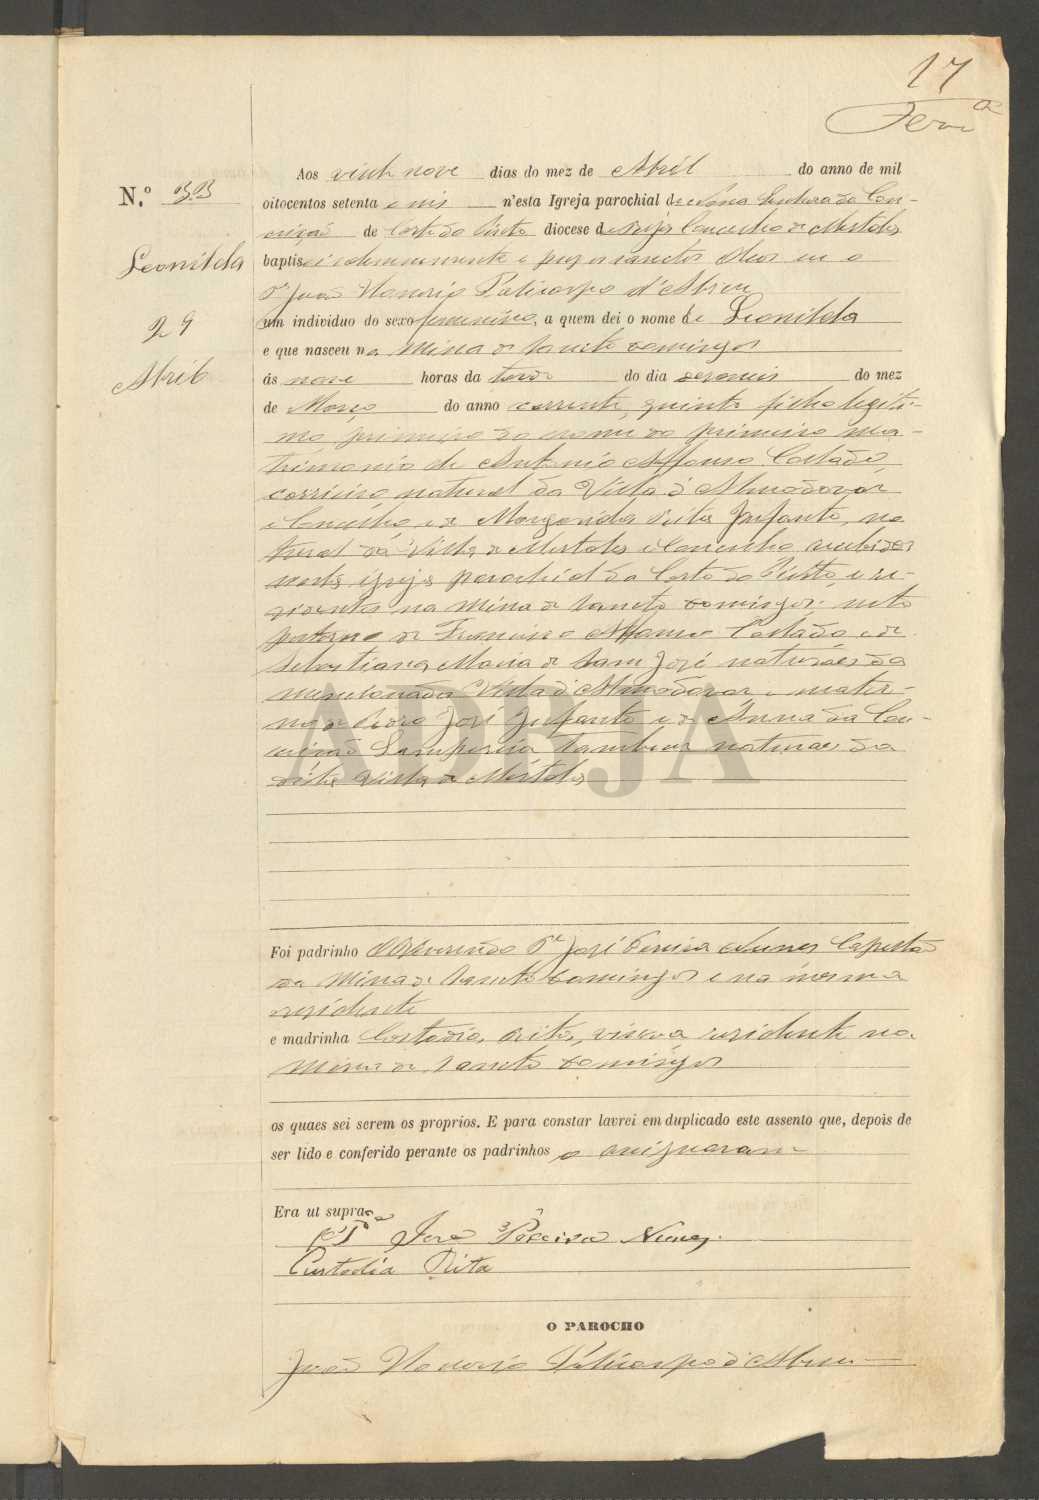 17
N.º 33
Leonilda
29
Abril
Aos vinte nove dias do mez de Abril do anno de mil
oitocentos setenta e seis n'esta Igreja parochial de Nossa Senhora da Con-
ceição de Corte do Pinto diocese de Beja Concelho de Mertola
baptisei solemnemente e puz os sanctos oleos eu o
P.e João Honorio Policarpo d'Abreu
um individuo do sexo femenino, a quem dei o nome de Leonilda
e que nasceu na Mina de Sancto Domingos
ás nove horas da tarde do dia deseseis do mez
de Março do anno corrente, quinta filha legiti-
ma primeira do nome do primeiro ma-
trimonio de Antonio Affonso Costado
corrieiro natural da Villa d'Almodovar
e Concelho e de Margarida Rita Infante, na
tural da Villa de Mertola e Concelho recebidos
nesta igreja parochial da Corte do Pinto e re-
sidentes na Mina de Sancto Domingos: neta
paterna de Francisco Affonso Costado e de
Sebastiana Maria de Sam José naturaes da
mencionada Villa d'Almodovar e mater-
na de Pedro José Infante e de Anna da Con-
ceição Samporeia tambem naturaes da
dita Villa de Mertola
ADBJA
Foi padrinho O Reverendo P.e José Pereira Nunes Capellão
da Mina de Sancto Domingos e na mesma
residente
e madrinha Custodia Rita, viuva residente na
Mina de Sancto Domingos
os quaes sei serem os proprios. E para constar lavrei em duplicado este assento que, depois de
ser lido e conferido perante os padrinhos o assignaram
Era ut supra
José Pereira Nunes.
Custodia Rita
O PAROCHO
João Honorio Policarpo d'Abreu